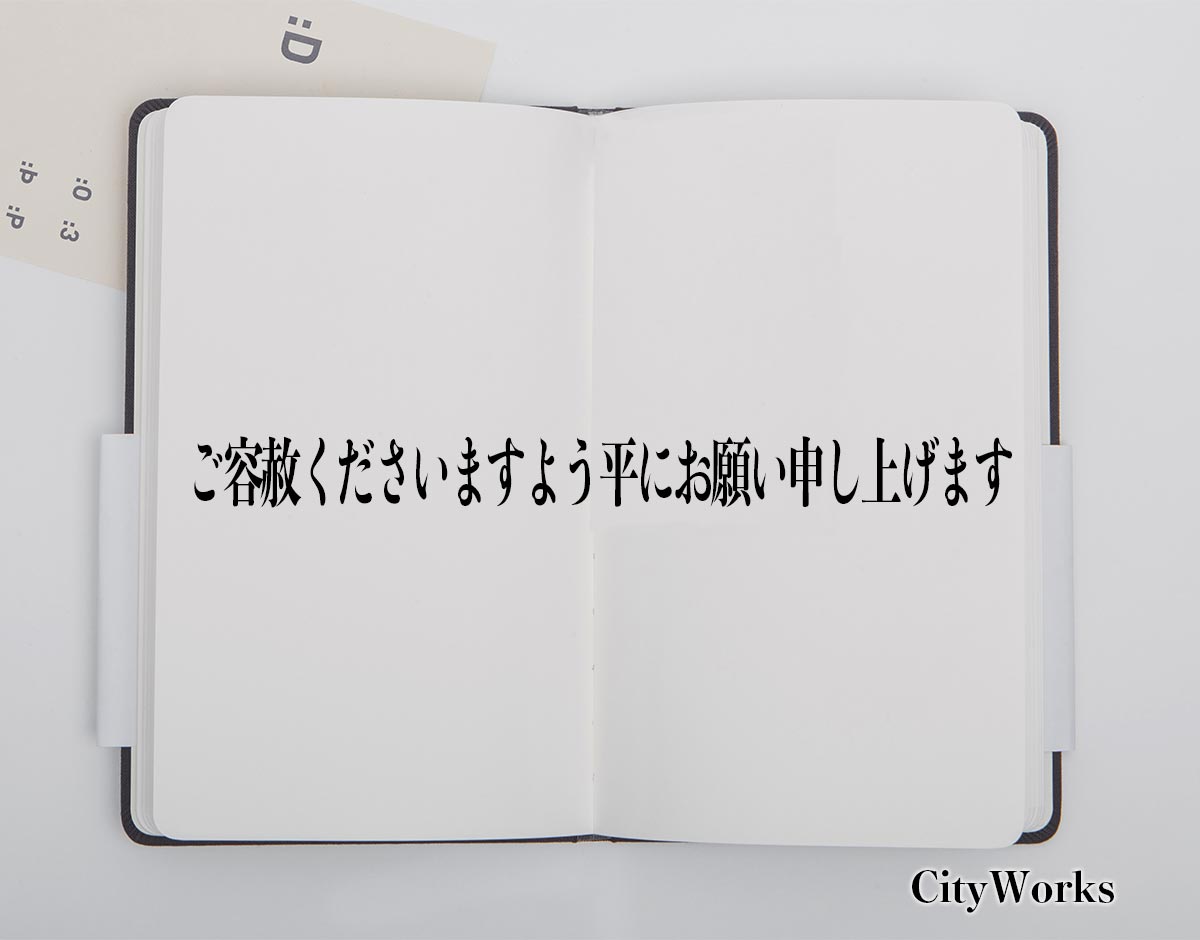 :D
:P :O
:P :3
ご容赦くださいますよう平にお願い申し上げます
CityWorks